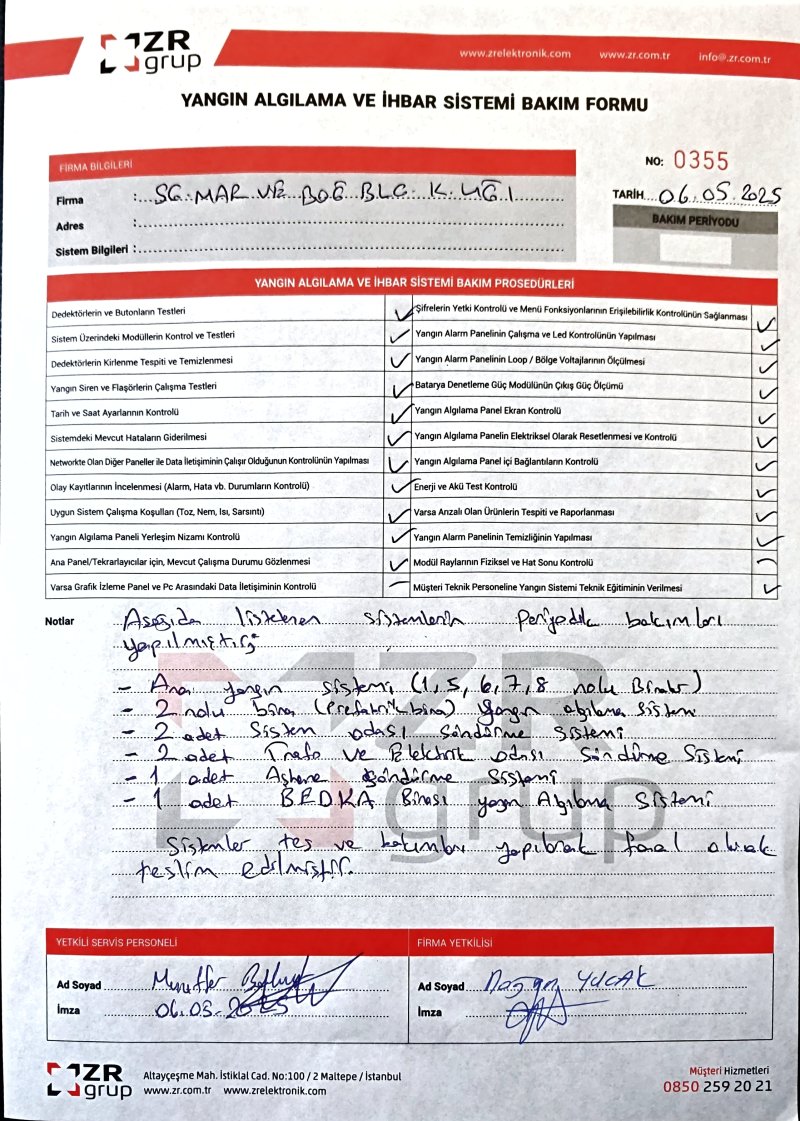 ZR grup
www.zrelektronik.com www.zr.com.tr info@.zr.com.tr
YANGIN ALGILAMA VE İHBAR SİSTEMİ BAKIM FORMU
FİRMA BİLGİLERİ
NO: 0355
Firma : SG. MAR VE BOĞ BLG. K.LIĞI
TARİH 06.05.2025
Adres :
BAKIM PERİYODU
Sistem Bilgileri :
YANGIN ALGILAMA VE İHBAR SİSTEMİ BAKIM PROSEDÜRLERİ
Dedektörlerin ve Butonların Testleri ✓ Şifrelerin Yetki Kontrolü ve Menü Fonksiyonlarının Erişilebilirlik Kontrolünün Sağlanması ✓
Sistem Üzerindeki Modüllerin Kontrol ve Testleri ✓ Yangın Alarm Panelinin Çalışma ve Led Kontrolünün Yapılması ✓
Dedektörlerin Kirlenme Tespiti ve Temizlenmesi ✓ Yangın Alarm Panelinin Loop / Bölge Voltajlarının Ölçülmesi ✓
Yangın Siren ve Flaşörlerin Çalışma Testleri ✓ Batarya Denetleme Güç Modülünün Çıkış Güç Ölçümü ✓
Tarih ve Saat Ayarlarının Kontrolü ✓ Yangın Algılama Panel Ekran Kontrolü ✓
Sistemdeki Mevcut Hataların Giderilmesi ✓ Yangın Algılama Panelin Elektriksel Olarak Resetlenmesi ve Kontrolü ✓
Networkte Olan Diğer Paneller ile Data İletişiminin Çalışır Olduğunun Kontrolünün Yapılması ✓ Yangın Algılama Panel içi Bağlantıların Kontrolü ✓
Olay Kayıtlarının İncelenmesi (Alarm, Hata vb. Durumların Kontrolü) ✓ Enerji ve Akü Test Kontrolü ✓
Uygun Sistem Çalışma Koşulları (Toz, Nem, Isı, Sarsıntı) ✓ Varsa Arızalı Olan Ürünlerin Tespiti ve Raporlanması ✓
Yangın Algılama Paneli Yerleşim Nizamı Kontrolü ✓ Yangın Alarm Panelinin Temizliğinin Yapılması ✓
Ana Panel/Tekrarlayıcılar için, Mevcut Çalışma Durumu Gözlenmesi ✓ Modül Raylarının Fiziksel ve Hat Sonu Kontrolü —
Varsa Grafik İzleme Panel ve Pc Arasındaki Data İletişiminin Kontrolü — Müşteri Teknik Personeline Yangın Sistemi Teknik Eğitiminin Verilmesi ✓
Notlar Aşağıda listelenen sistemlerin periyodik bakımları
yapılmıştır.
- Ana yangın sistemi (1, 5, 6, 7, 8 nolu Binalar)
- 2 nolu bina (Prefabrik bina) yangın algılama sistemi
- 2 adet Sistem odası söndürme sistemi
- 2 adet Trafo ve Elektrik odası Söndürme Sistemi
- 1 adet Aşhane söndürme sistemi
- 1 adet BEDKA Binası yangın Algılama sistemi
Sistemler tes ve bakımları yapılarak faal olarak
teslim edilmiştir.
YETKİLİ SERVİS PERSONELİ FİRMA YETKİLİSİ
Ad Soyad Ad Soyad YUCAK
İmza 06.05.2025 İmza
ZR grup
Altayçeşme Mah. İstiklal Cad. No:100 / 2 Maltepe / İstanbul
www.zr.com.tr www.zrelektronik.com
Müşteri Hizmetleri
0850 259 20 21